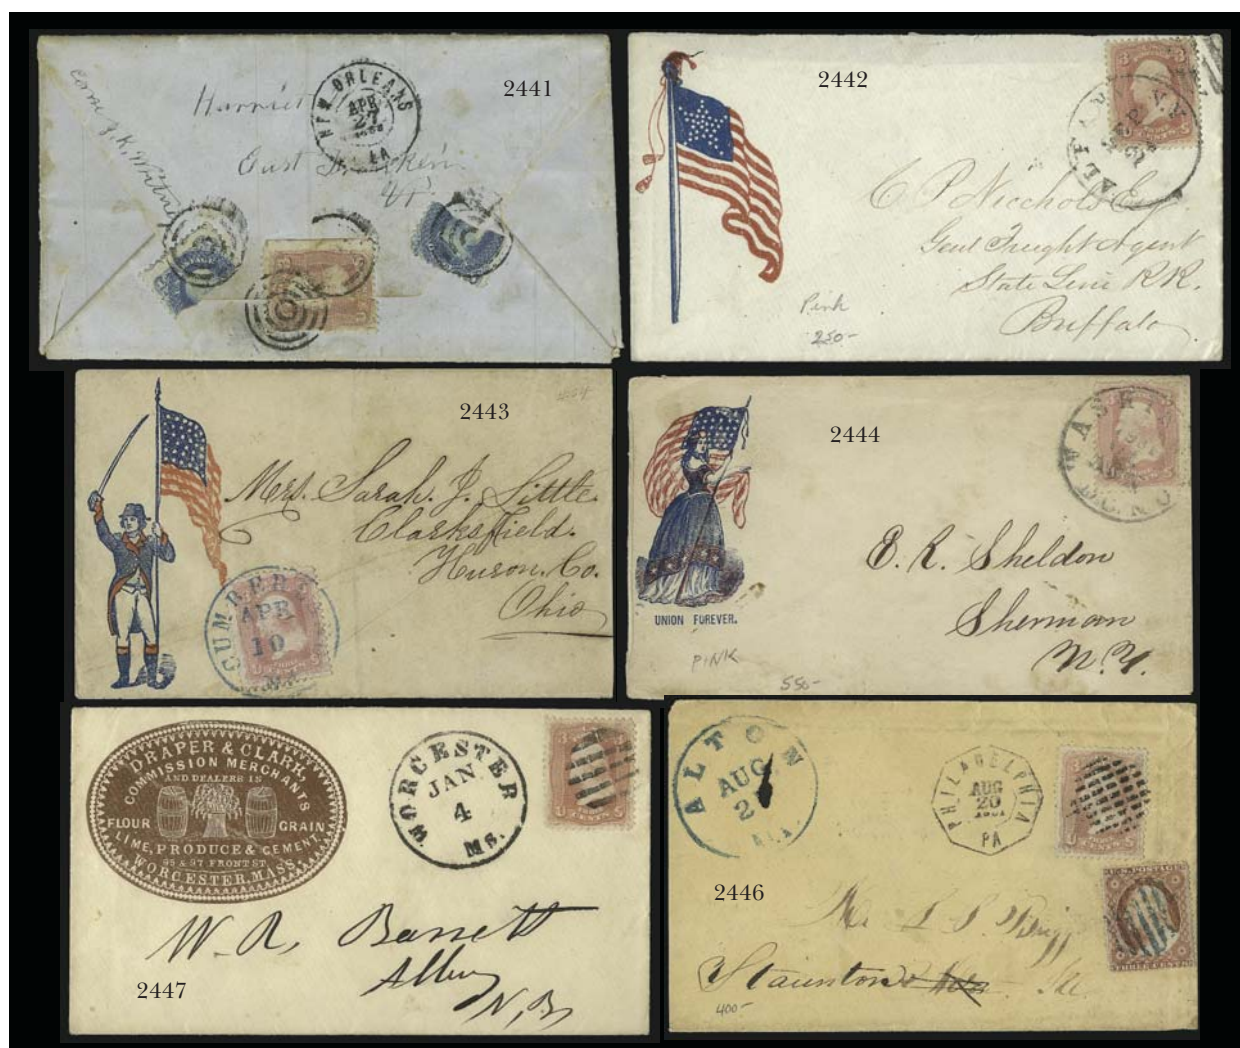 2441
NEW ORLEANS
APR
27
LA
Harriet
East
2442
C P Nicchols Esq
Genl Freight Agent
State Line RR.
Buffalo
Pink
250-
2443
Mrs. Sarah. J. Little
Clarksfield.
Huron. Co.
Ohio
CUMBERL
APR
10
2444
WASH
E. R. Sheldon
Sherman
N.Y.
UNION FOREVER.
PINK
550-
DRAPER & CLARK,
COMMISSION MERCHANTS
AND DEALERS IN
FLOUR GRAIN
LIME, PRODUCE & CEMENT,
95 & 97 FRONT ST
WORCESTER, MASS.
WORCESTER
JAN
4
MS.
W. R. Barrett
Albury
2447
ALTON
AUG
PHILADELPHIA
AUG
20
1861
PA
2446
Mr
Staunton
THREE CENTS
400-